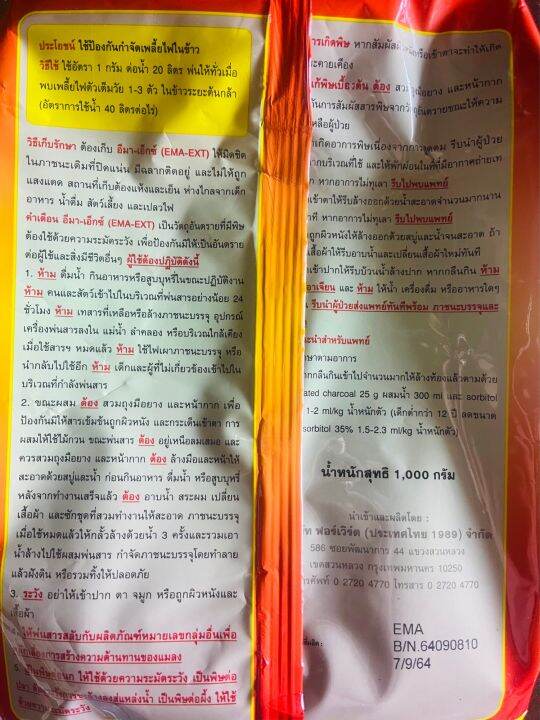 ประโยชน์ ใช้ป้องกันกำจัดเพลี้ยไฟในข้าว
วิธีใช้ ใช้อัตรา 1 กรัม ต่อน้ำ 20 ลิตร พ่นให้ทั่วเมื่อ
พบเพลี้ยไฟตัวเต็มวัย 1-3 ตัว ในข้าวระยะต้นกล้า
(อัตราการใช้น้ำ 40 ลิตรต่อไร่)
วิธีเก็บรักษา ต้องเก็บ อีมา-เอ็กซ์ (EMA-EXT) ให้มิดชิด
ในภาชนะเดิมที่ปิดแน่น มีฉลากติดอยู่ และไม่ให้ถูก
แสงแดด สถานที่เก็บต้องแห้งและเย็น ห่างไกลจากเด็ก
อาหาร น้ำดื่ม สัตว์เลี้ยง และเปลวไฟ
คำเตือน อีมา-เอ็กซ์ (EMA-EXT) เป็นวัตถุอันตรายที่มีพิษ
ต้องใช้ด้วยความระมัดระวัง เพื่อป้องกันมิให้เป็นอันตราย
ต่อผู้ใช้และสิ่งมีชีวิตอื่นๆ ผู้ใช้ต้องปฏิบัติดังนี้
1. ห้าม ดื่มน้ำ กินอาหารหรือสูบบุหรี่ในขณะปฏิบัติงาน
ห้าม คนและสัตว์เข้าไปในบริเวณที่พ่นสารอย่างน้อย 24
ชั่วโมง ห้าม เทสารที่เหลือหรือล้างภาชนะบรรจุ อุปกรณ์
เครื่องพ่นสารลงใน แม่น้ำ ลำคลอง หรือบริเวณใกล้เคียง
เมื่อใช้สารฯ หมดแล้ว ห้าม ใช้ไฟเผาภาชนะบรรจุ หรือ
นำกลับไปใช้อีก ห้าม เด็กและผู้ที่ไม่เกี่ยวข้องเข้าไปใน
บริเวณที่กำลังพ่นสาร
2. ขณะผสม ต้อง สวมถุงมือยาง และหน้ากาก เพื่อ
ป้องกันมิให้สารเข้มข้นถูกผิวหนัง และกระเด็นเข้าตา การ
ผสมให้ใช้ไม้กวน ขณะพ่นสาร ต้อง อยู่เหนือลมเสมอ และ
ควรสวมถุงมือยาง และหน้ากาก ต้อง ล้างมือและหน้าให้
สะอาดด้วยสบู่และน้ำ ก่อนกินอาหาร ดื่มน้ำ หรือสูบบุหรี่
หลังจากทำงานเสร็จแล้ว ต้อง อาบน้ำ สระผม เปลี่ยน
เสื้อผ้า และซักชุดที่สวมทำงานให้สะอาด ภาชนะบรรจุ
เมื่อใช้หมดแล้วให้กลั้วล้างด้วยน้ำ 3 ครั้งและรวมเอา
น้ำล้างไปใช้ผสมพ่นสาร กำจัดภาชนะบรรจุโดยทำลาย
แล้วฝังดิน หรือรวมทิ้งให้ปลอดภัย
3. ระวัง อย่าให้เข้าปาก ตา จมูก หรือถูกผิวหนังและ
เสื้อผ้า
ให้พ่นสารสลับกับผลิตภัณฑ์หมายเลขกลุ่มอื่นเพื่อ
การสร้างความต้านทานของแมลง
ให้ใช้ด้วยความระมัดระวัง เป็นพิษต่อ
ลงสู่แหล่งน้ำ เป็นพิษต่อผึ้ง ให้ใช้
ด้วยความระมัดระวัง
การเกิดพิษ หากสัมผัส หรือเข้าตาจะทำให้เกิด
ระคายเคือง
แก้พิษเบื้องต้น ต้อง สวม มือยาง และหน้ากาก
กันการสัมผัสสารพิษจาก อันตรายขณะให้ความ
เหลือผู้ป่วย
เกิดอาการพิษเนื่องจากการสูดดม รีบนำผู้ป่วย
บริเวณที่ใช้ และให้พักผ่อนในที่ที่มีอากาศถ่ายเท
หากอาการไม่ทุเลา รีบไปพบแพทย์
เข้าตาให้รีบล้างออกด้วยน้ำสะอาดจำนวนมากนาน
ที หากอาการไม่ทุเลา รีบไปพบแพทย์
ถูกผิวหนังให้ล้างออกด้วยสบู่และน้ำจนสะอาด ถ้า
เสื้อผ้าให้รีบอาบน้ำและเปลี่ยนเสื้อผ้าใหม่ทันที
เข้าปากให้รีบบ้วนน้ำล้างปาก หากกลืนกิน ห้าม
อาเจียน และ ห้าม ให้น้ำ เครื่องดื่ม หรืออาหารใดๆ
รีบนำผู้ป่วยส่งแพทย์ทันทีพร้อม ภาชนะบรรจุและ
แนะนำสำหรับแพทย์
รักษาตามอาการ
หากกลืนกินเข้าไปจำนวนมากให้ล้างท้องแล้วตามด้วย
charcoal 25 g ผสมน้ำ 300 ml และ sorbitol
1-2 ml/kg น้ำหนักตัว (เด็กต่ำกว่า 12 ปี ลดขนาด
sorbitol 35% 1.5-2.3 ml/kg น้ำหนักตัว)
น้ำหนักสุทธิ 1,000 กรัม
นำเข้าและผลิตโดย :
ฟอร์เวิร์ด (ประเทศไทย 1989) จำกัด
586 ซอยพัฒนาการ 44 แขวงสวนหลวง
เขตสวนหลวง กรุงเทพมหานคร 10250
โทรศัพท์ 0 2720 4770 โทรสาร 0 2720 4770
EMA
B/N.64090810
7/9/64